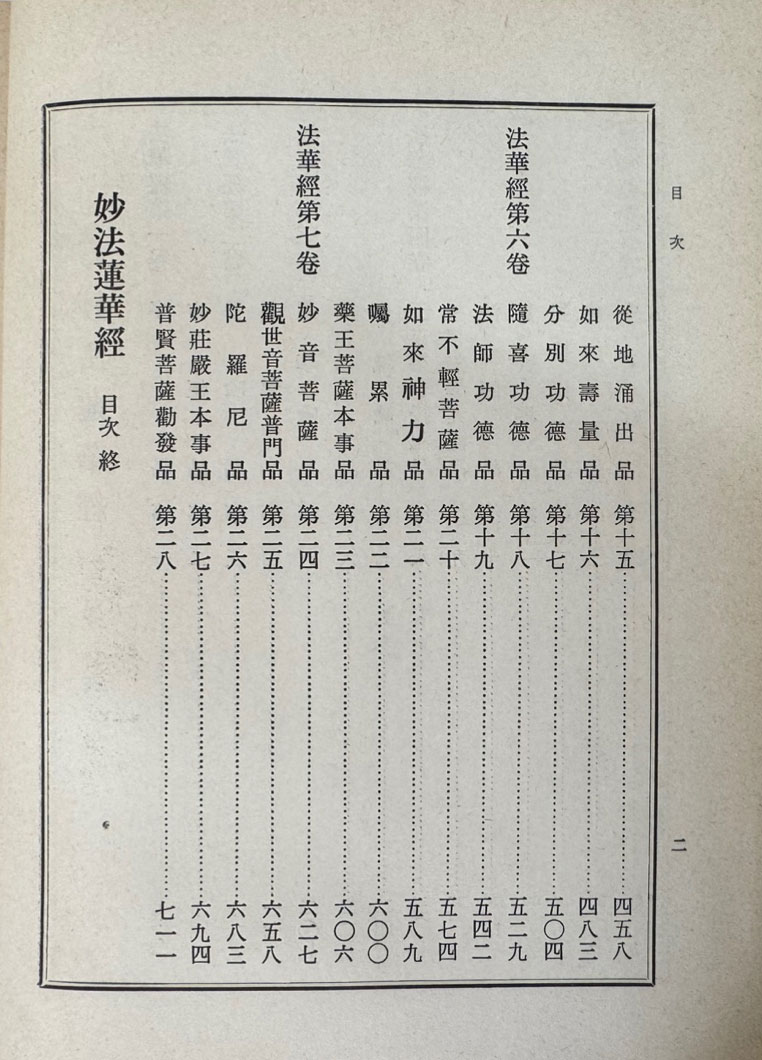 目次
二
從地涌出品 第十五 四五八
如來壽量品 第十六 四八三
法華經第六卷
分別功德品 第十七 五〇四
隨喜功德品 第十八 五二九
法師功德品 第十九 五四二
常不輕菩薩品 第二十 五七四
如來神力品 第二一 五八九
囑累品 第二二 六〇〇
藥王菩薩本事品 第二三 六〇六
法華經第七卷
妙音菩薩品 第二四 六二七
觀世音菩薩普門品 第二五 六五八
陀羅尼品 第二六 六八三
妙莊嚴王本事品 第二七 六九四
普賢菩薩勸發品 第二八 七一一
妙法蓮華經 目次終